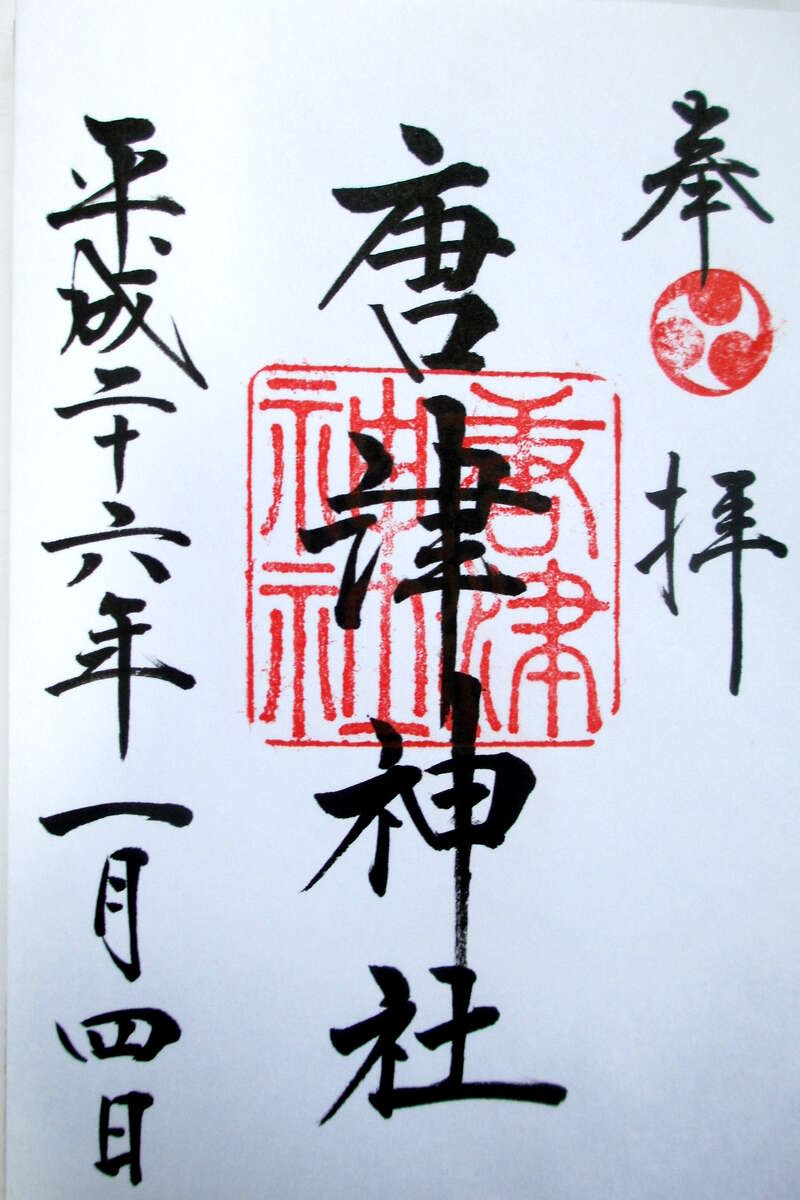 奉拝
唐津神社
唐津神社
平成二十六年一月四日